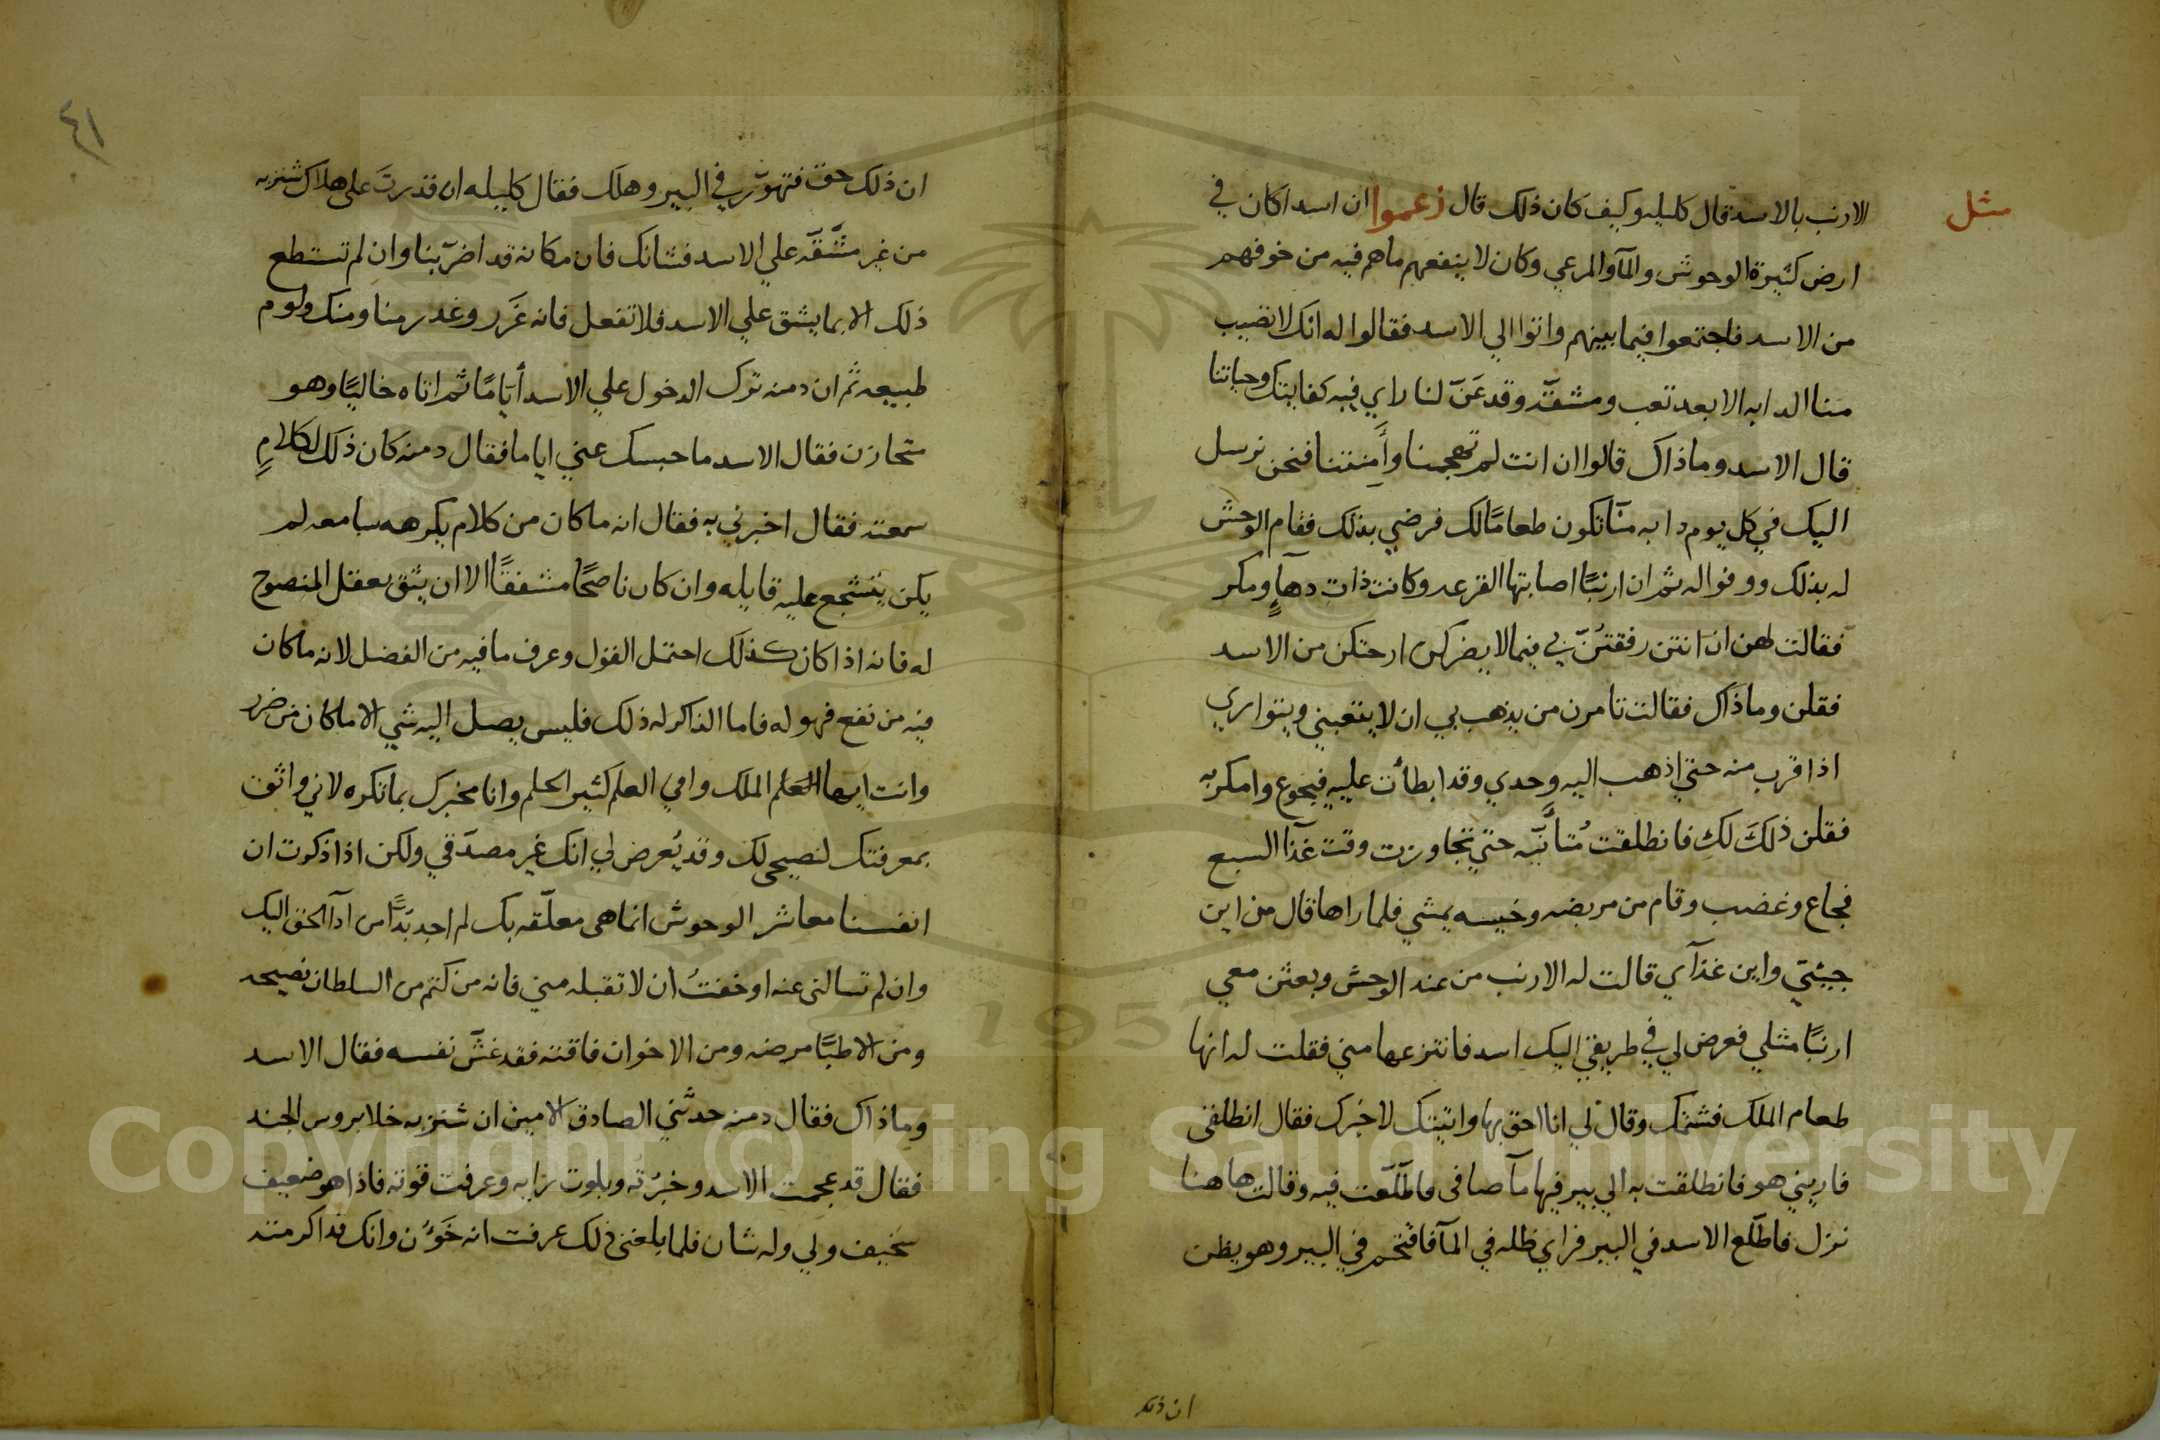 مثل
الارنب بالاسد قال كليله وكيف كان ذلك قال زعموا ان اسدا كان في
ارض كثيرة الوحوش والمآ والمرعي وكان لا ينفعهم ما هم فيه من خوفهم
من الاسد فاجتمعوا فيما بينهم واتوا الي الاسد فقالوا له انك لا تصيب
منا الدابه الا بعد تعب ومشقّه وقد عَنّ لنا راي فيه كفايتك وحياتنا
قال الاسد وما ذاك قالوا ان انت لم تهجمنا وأَمِنتنا فنحن نرسل
اليك في كل يوم دابه منّا تكون طعامًا لك فرضي بذلك فقام الوحش
له بذلك ووفوا له ثم ان ارنبًا اصابتها القرعه وكانت ذات دهآءٍ ومكر
فقالت لهن ان انتن رفقتُنّ بي فيما لا يضركن ارحتكن من الاسد
فقلن وما ذاك فقالت تامرن من يذهب بي ان لا يتعبني ويتواري
اذا قرب منه حتي اذهب اليه وحدي وقد ابطأت عليه فيجوع وامكر به
فقلن ذلكَ لكِ فانطلقت مُتأَنّيَه حتي تجاوزت وقت غذآ السبع
فجاع وغضب وقام من مربضه وخيسه يمشي فلما راها قال من اين
جيئتي واين غذآي قالت له الارنب من عند الوحش وبعثن معي
ارنبًا مثلي فعرض لي في طريقي اليك اسد فانتزعها مني فقلت له انها
طعام الملك فشتمك وقال لي انا احق بها واتيتك لاخبرك فقال انطلقي
فاريني هو فانطلقت به الي بير فيها مآ صافي فاطّلَعت فيه وقالت هاهنا
نزل فاطّلع الاسد في البير فراي ظله في المآ فاقتحم في البير وهو يظن
ان ذلك
٤١
ان ذلك حق فتهوّر في البير وهلك فقال كليله ان قدرتَ علي هلاك شنزبه
من غير مشّقّه علي الاسد فشانك فان مكانه قد اضرّ بنا وان لم تستطع
ذلك الا بما يشق علي الاسد فلا تفعل فانه غَرَر وغدر منا ومنك ولوم
طبيعه ثم ان دمنه ترك الدخول علي الاسد أيّامًا ثم اتاه خاليًا وهو
متحازن فقال الاسد ما حبسك عني اياما فقال دمنه كان ذلك لكلامٍ
سمعته فقال اخبرني به فقال انه ما كان من كلام يكرهه سامعه لم
يكن يتشجع عليه قايله وان كان ناصحًا مشفقًا الا ان يثق بعقل المنصوح
له فانه اذا كان كذلك احتمل القول وعرف ما فيه من الفضل لانه ما كان
فيه من نفع فهو له فاما الذاكر له ذلك فليس يصل اليه شي الا ما كان من ضرر
وانت ايها الملك وافي العلم كثير الحلم وانا مخبرك بما تكره لاني واثق
بمعرفتك لنصيحى لك وقد يُعرض لي انك غير مصدّقي ولكن اذا ذكرت ان
انفسنا معاشر الوحوش انما هى معلّقه بك لم اجد بُدًّا من ادآ الحق اليك
وان لم تسالنى عنه او خفتُ ان لا تقبله مني فانه من كتم من السلطان نصيحه
ومن الاطبّا مرضه ومن الاخوان فاقته فقد غشّ نفسه فقال الاسد
وما ذاك فقال دمنه حدثّني الصادق الامين ان شنزبه خلا بروس الجند
فقال قد عجمت الاسد وخبرْته وبلوت رايه وعرفت قوته فاذا هو ضعيف
سخيف ولي وله شان فلما بلغنى ذلك عرفت انه خَوُّن وانك قد اكرمته